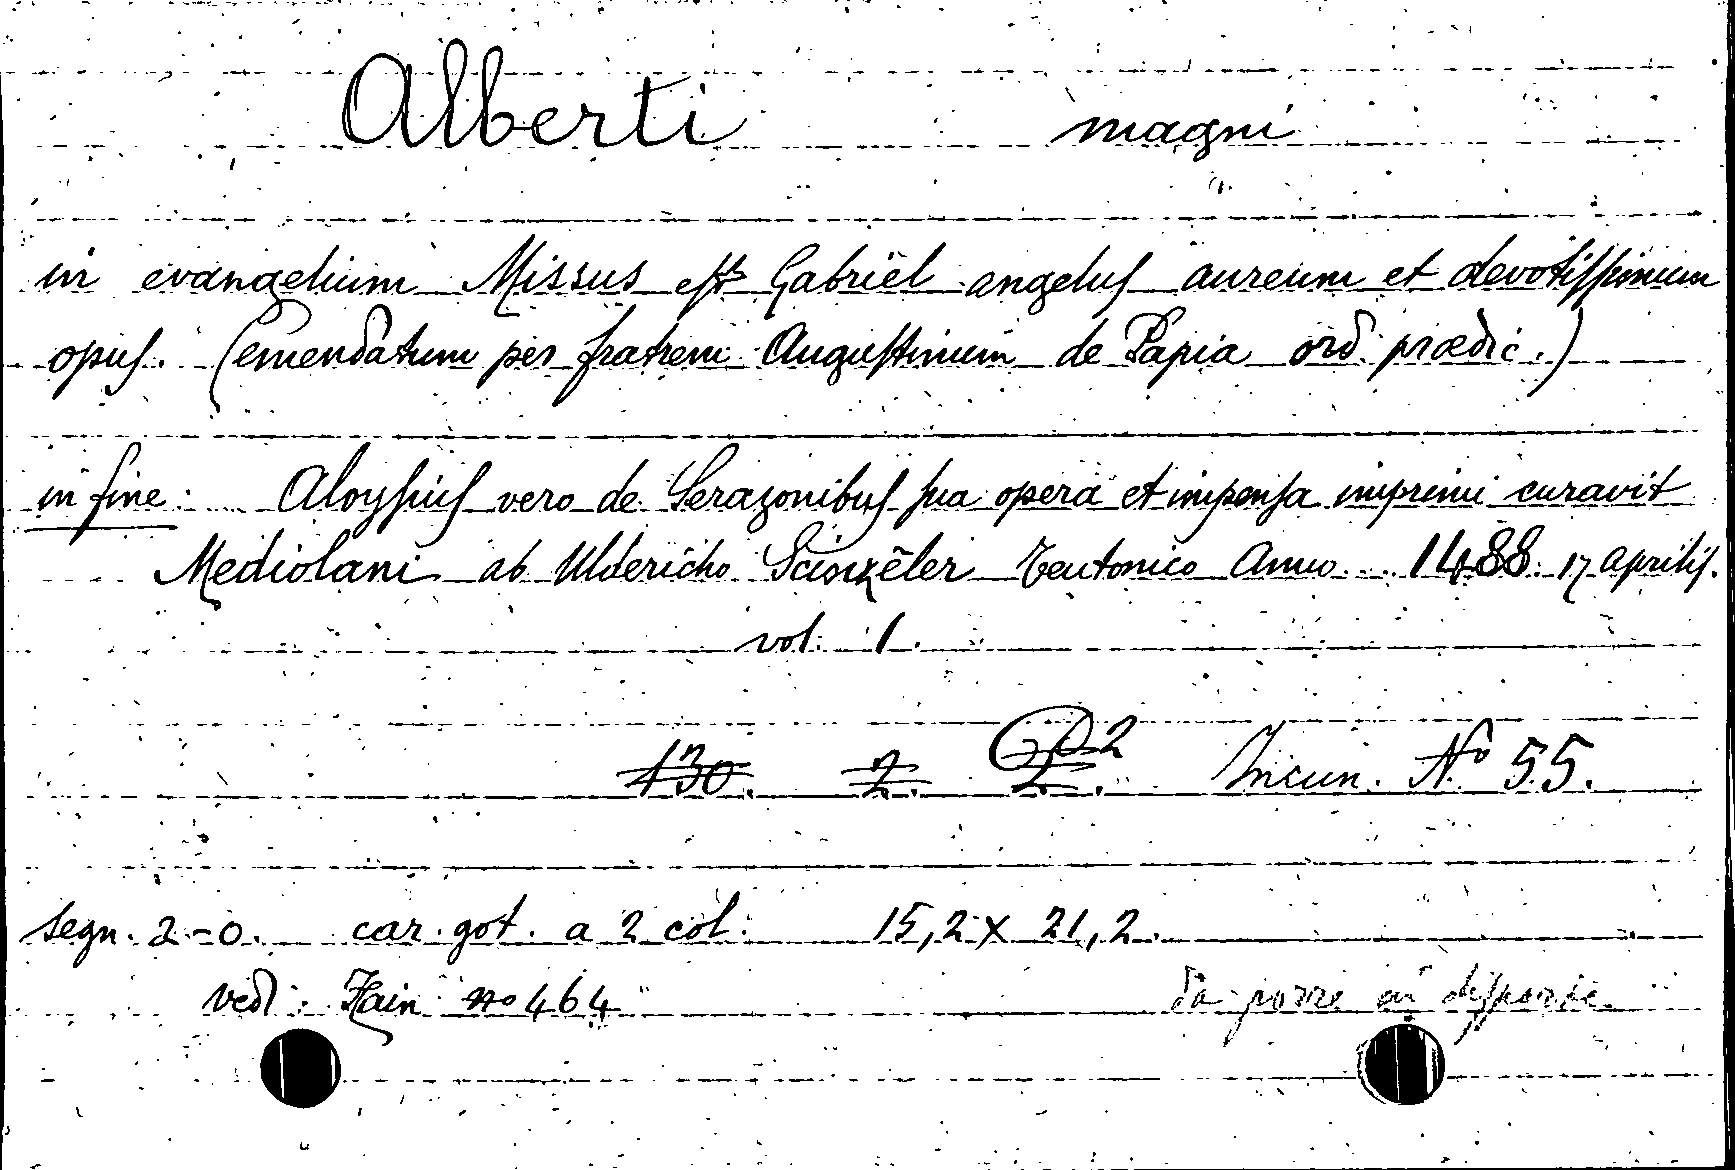 Alberti magni
in evangelium Missus est Gabriel angelus aureum et devotissimum
opus. (emendatum per fratrem Augustinum de Papia ord. prædic.)
in fine: Aloysius vero de Serazonibus sua opera et impensa imprimi curavit
Mediolani ab Uldericho Scinzeler Teutonico Anno 1488. 17 aprilis.
vol. 1.
130. 2. 2. Incun. Nº 55.
segn. 2-o. car. got. a 2 col. 15,2 x 21,2.
ved. Hain nº 464 da porre in disparte.